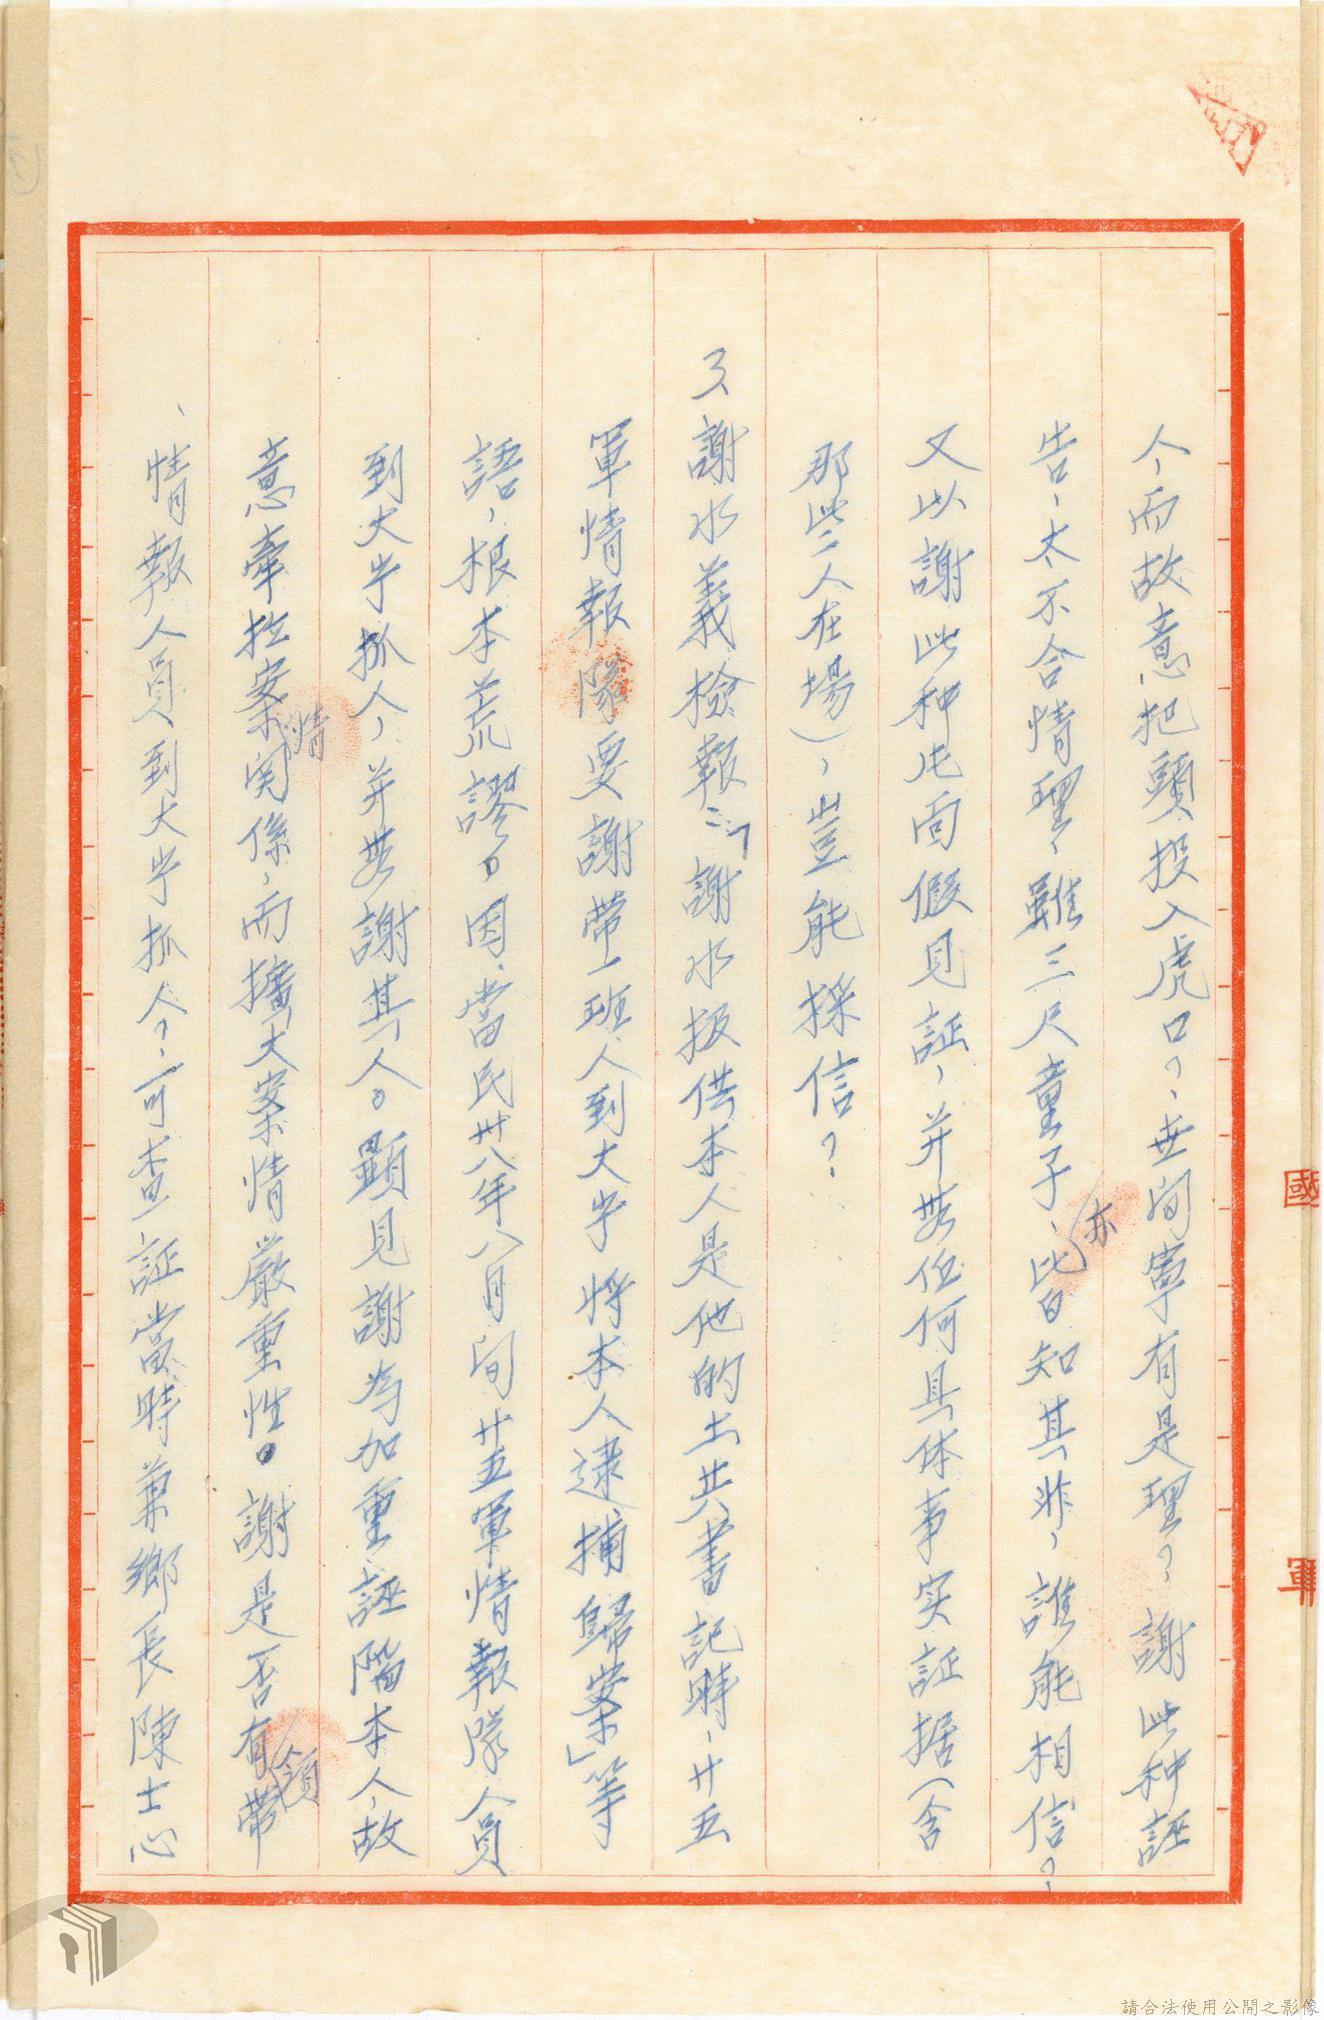 人,而故意把頭投入虎口?,世间寧有是理?謝此种誣
告,太不合情理,雖三尺童子,亦皆知其非,誰能相信?
又以謝此种片面假見証,并無任何具体事实証据(含
那些人在場),豈能採信?
3、謝水義檢報:「謝水扱供本人是他的土共書記時,廿五
軍情報隊要謝带一班人到大屿將本人逮捕歸案」等
語,根本荒謬。因,當民卅八年八月间廿五軍情報隊人員
到大屿抓人,并無謝其人。顯見謝為加重誣陷本人,故
意牽扯案情関係,而擴大案情嚴重性。謝是否有带領
、情報人員到大屿抓人?,可查証當時兼鄉長陳士心
國
軍
請合法使用公開之影像